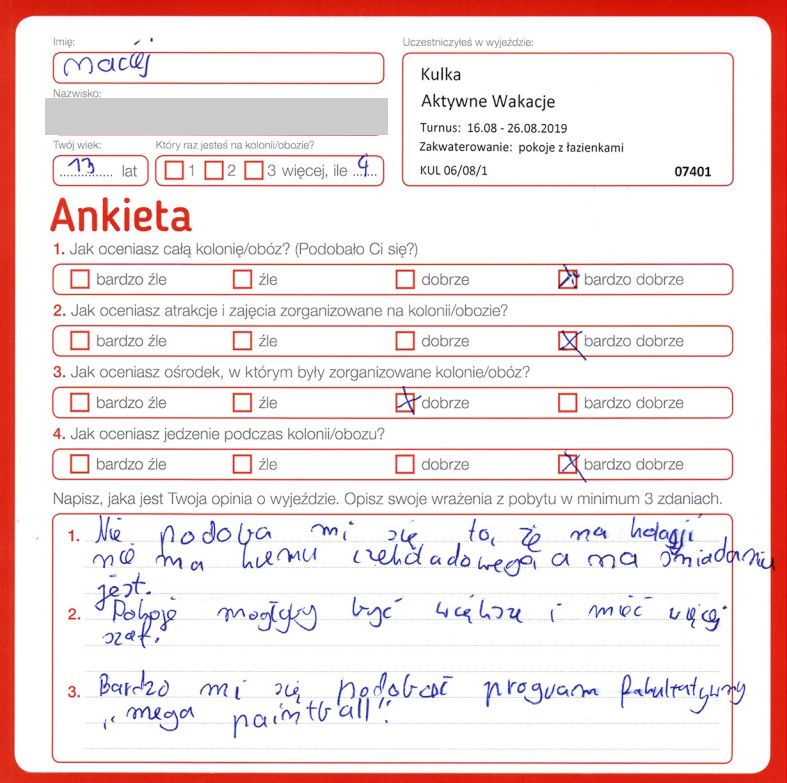 Imię:
Maciej
Nazwisko:
Twój wiek:
13 lat
Który raz jesteś na kolonii/obozie?
1 2 3 więcej, ile 4
Uczestniczyłeś w wyjeździe:
Kulka
Aktywne Wakacje
Turnus: 16.08 - 26.08.2019
Zakwaterowanie: pokoje z łazienkami
KUL 06/08/1 07401
Ankieta
1. Jak oceniasz całą kolonię/obóz? (Podobało Ci się?)
bardzo źle źle dobrze bardzo dobrze
2. Jak oceniasz atrakcje i zajęcia zorganizowane na kolonii/obozie?
bardzo źle źle dobrze bardzo dobrze
3. Jak oceniasz ośrodek, w którym były zorganizowane kolonie/obóz?
bardzo źle źle dobrze bardzo dobrze
4. Jak oceniasz jedzenie podczas kolonii/obozu?
bardzo źle źle dobrze bardzo dobrze
Napisz, jaka jest Twoja opinia o wyjeździe. Opisz swoje wrażenia z pobytu w minimum 3 zdaniach.
1. Nie podoba mi się to, że na kolacji
nie ma kremu czekoladowego, a na śniadaniu
jest.
2. Pokoje mogłyby być większe i mieć więcej
szaf.
3. Bardzo mi się podobał program fakultatywny
„mega paintball”.